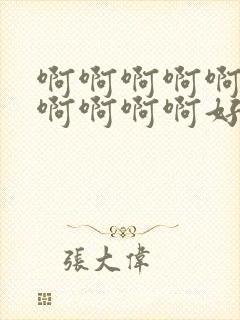 啊啊啊啊啊
啊啊啊啊好
張大偉